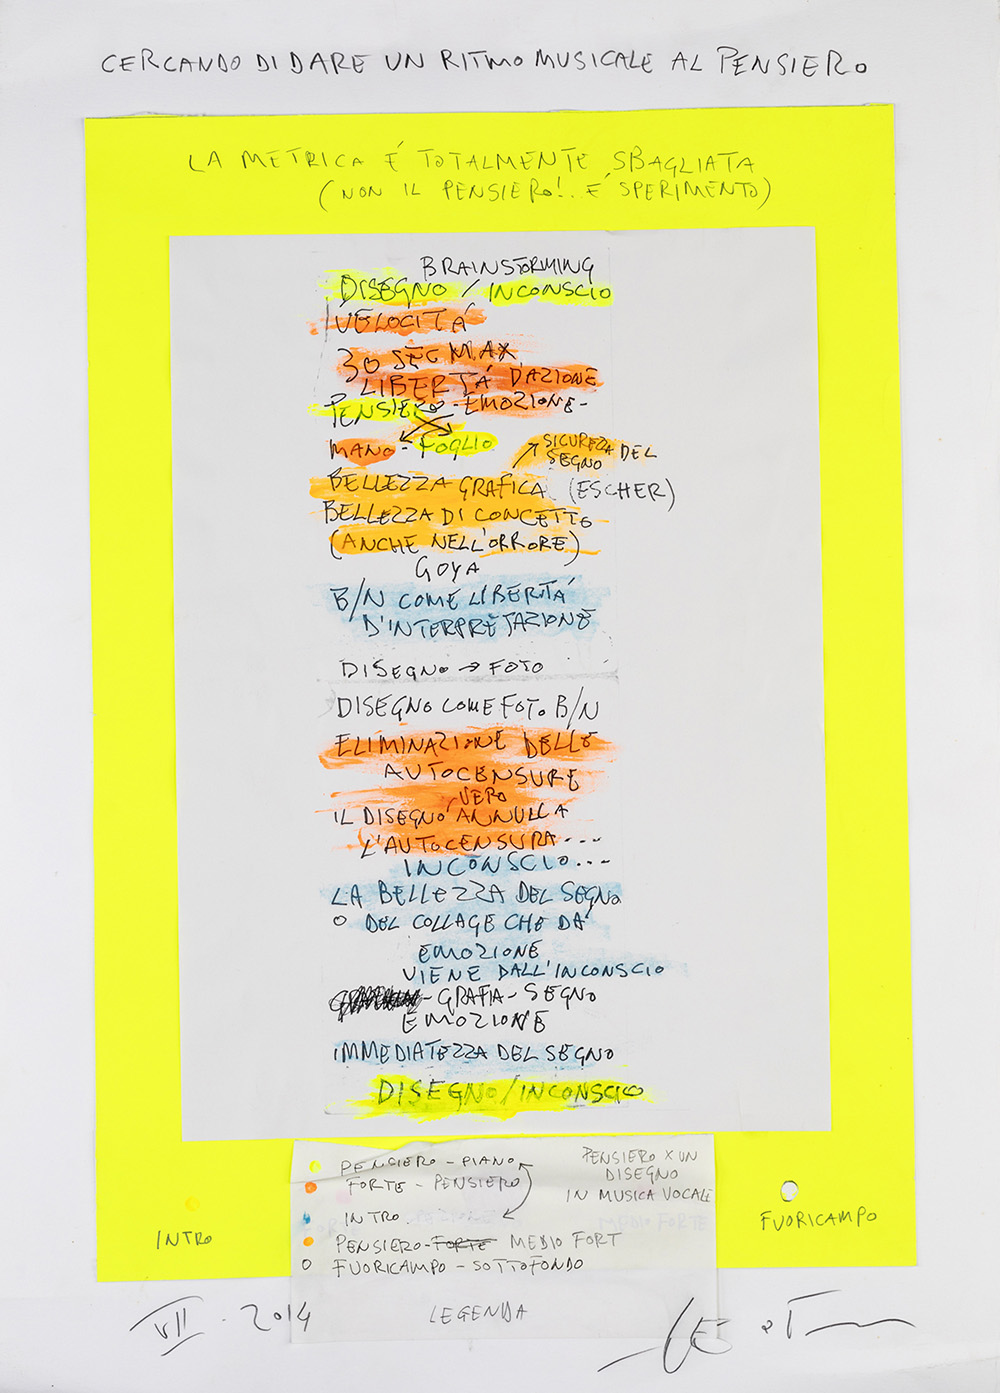 CERCANDO DI DARE UN RITMO MUSICALE AL PENSIERO
LA METRICA É TOTALMENTE SBAGLIATA
(NON IL PENSIERO!. E' SPERIMENTO)
BRAINSTORMING
DISEGNO / INCONSCIO
VELOCITÁ
30 SEC MAX
LIBERTÁ D'AZIONE
PENSIERO - EMOZIONE -
MANO - FOGLIO
SICUREZZA DEL
SEGNO
BELLEZZA GRAFICA (ESCHER)
BELLEZZA DI CONCETTO
(ANCHE NELL'ORRORE)
GOYA
B/N COME LIBERTÁ
D'INTERPRETAZIONE
DISEGNO → FOTO
DISEGNO COME FOTO B/N
ELIMINAZIONE DELLE
AUTOCENSURE
VERO
IL DISEGNO ANNULLA
L'AUTOCENSURA ...
INCONSCIO ...
LA BELLEZZA DEL SEGNO
O DEL COLLAGE CHE DA'
EMOZIONE
VIENE DALL'INCONSCIO
- GRAFIA - SEGNO
EMOZIONE
IMMEDIATEZZA DEL SEGNO
DISEGNO / INCONSCIO
PENSIERO - PIANO
FORTE - PENSIERO
INTRO
PENSIERO - FORTE MEDIO FORT
FUORICAMPO - SOTTOFONDO
PENSIERO X UN
DISEGNO
IN MUSICA VOCALE
INTRO
FUORICAMPO
LEGENDA
VII - 2014